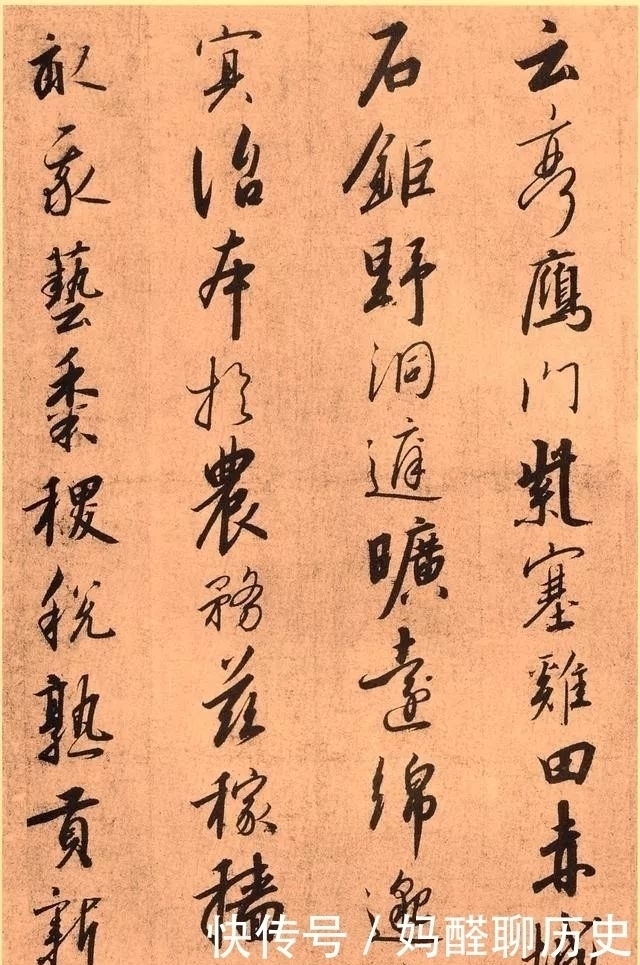 云亭鴈門紫塞雞田赤城
石鉅野洞庭曠遠綿邈
冥治本於農務茲稼穡
畝我藝黍稷稅熟貢新
快传号 / 妈醛聊历史